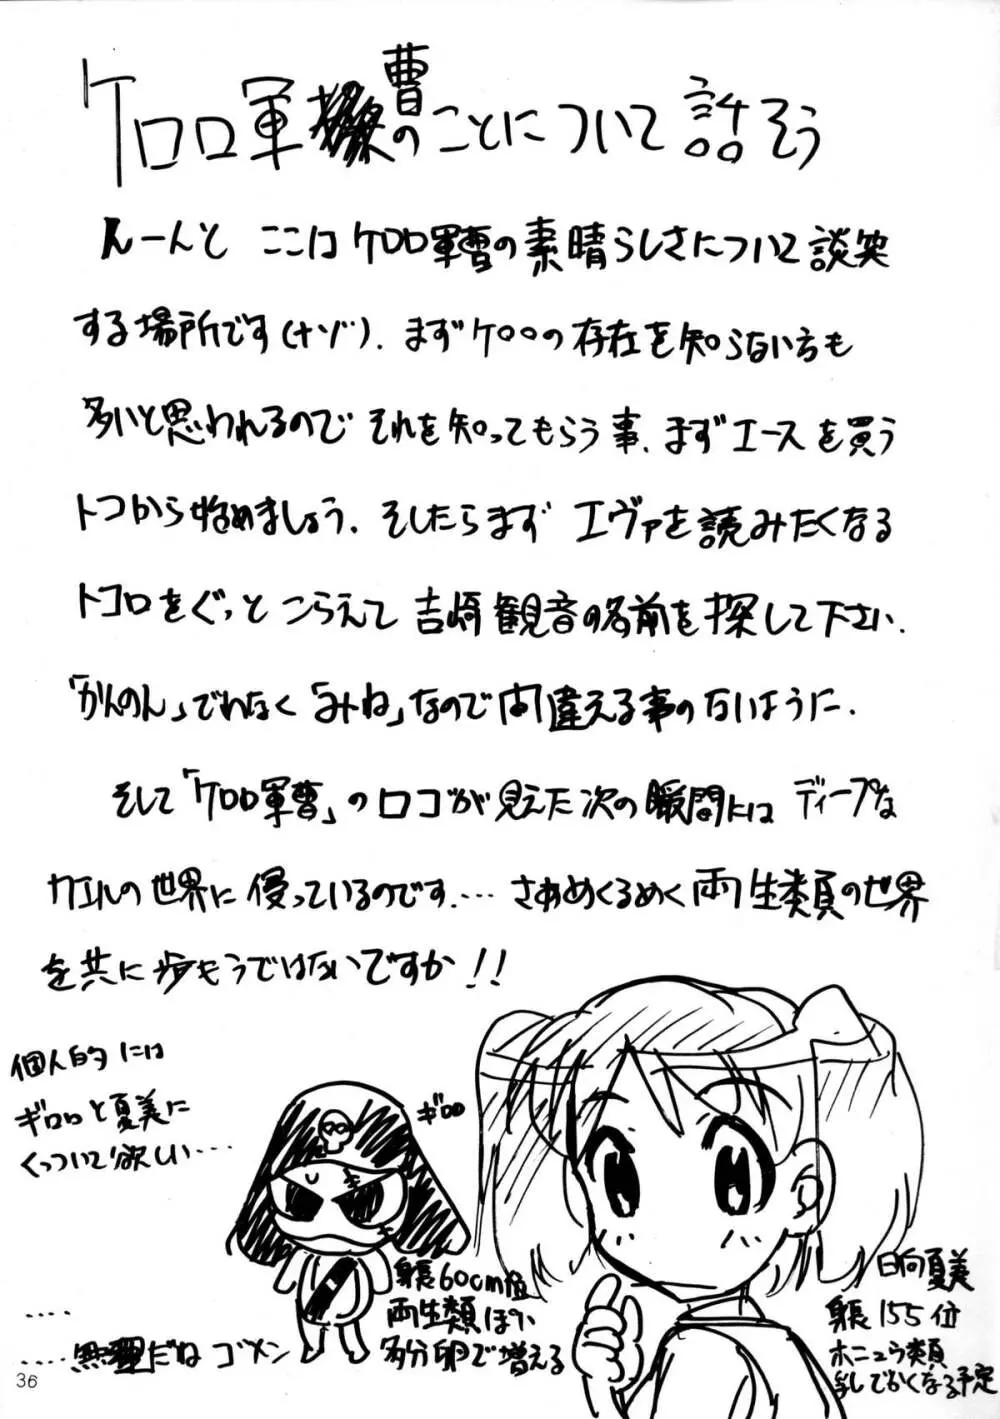 ケロロ軍曹のことについて話そう
んーんと ここはケロロ軍曹の素晴らしさについて談笑
する場所です(ナゾ). まずケロロの存在を知らない方も
多いと思われるのでそれを知ってもらう事、まずエースを買う
トコから始めましょう. そしたらまず エヴァを読みたくなる
トコロをぐっと こらえて 吉崎観音の名前を探して下さい.
「かんのん」でわなく「みね」なので間違える事のないように.
そして「ケロロ軍曹」のロゴが見えた次の瞬間にはディープな
カエルの世界に侵っているのです..... さあめくるめく両生類の世界
を共に歩もうではないですか!!
個人的には
ギロロと夏美に
くっついて欲しい....
ギロロ
身長60cm位
両生類ぽい
多分卵で増える
....
....無理だね ゴメン
日向夏美
身長155位
ホニュウ類
乳でかくなる予定
36